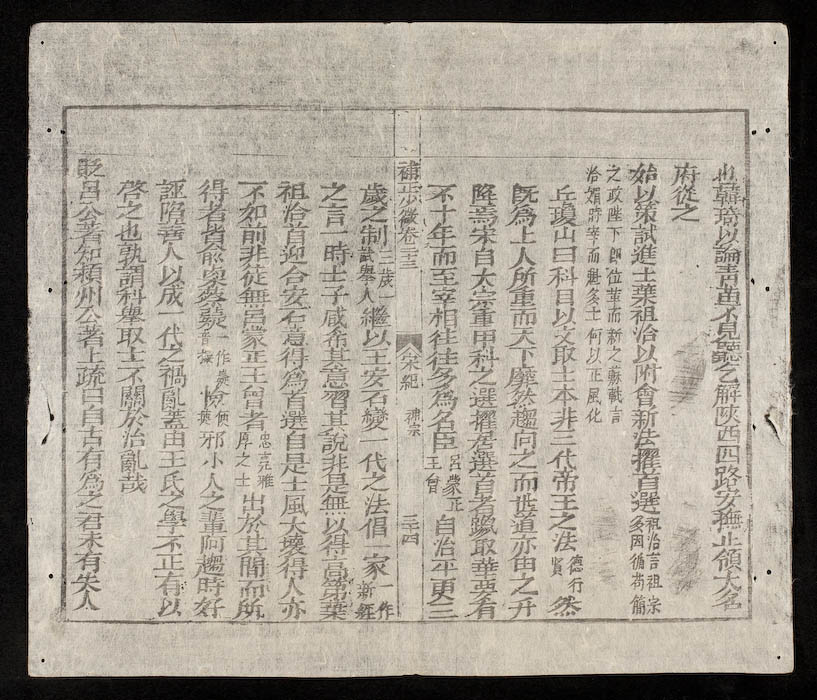 也韓琦以論青苗不見聽乞解陝西四路安撫止領大名
府從之
始以策試進士葉祖洽以附會新法擢首選祖洽言祖宗多因循苟簡
之政陛下即位革而新之蘇軾言
洽媚時宰而魁多士何以正風化
丘瓊山曰科目以文取士本非三代帝王之法德行賢然
既為上人所重而天下靡然趨向之而世道亦由之升
降焉宋自太宗重甲科之選擢居選首者躐取華要有
不十年而至宰相往往多為名臣呂蒙正王曾自治平更三
補步徵卷二十三 宋紀 神宗 三十四
歲之制三歲一試舉人繼以王安石變一代之法倡一家一作新經
之言一時士子咸希其意習其說非是無以得高第葉
祖洽首迎合安石意得為首選自是士風大壞得人亦
不如前非徒無呂蒙正王曾者忠亮雅厚之士出於其間而所
得者皆俞奧蔡嶷一作薿音擬憸一作便邪小人之輩阿趨時好
誣陷善人以成一代之禍亂蓋由王氏之學不正有以
啓之也孰謂科舉取士不關於治亂哉
貶呂公著知潁州公著上疏曰自古有為之君未有失人